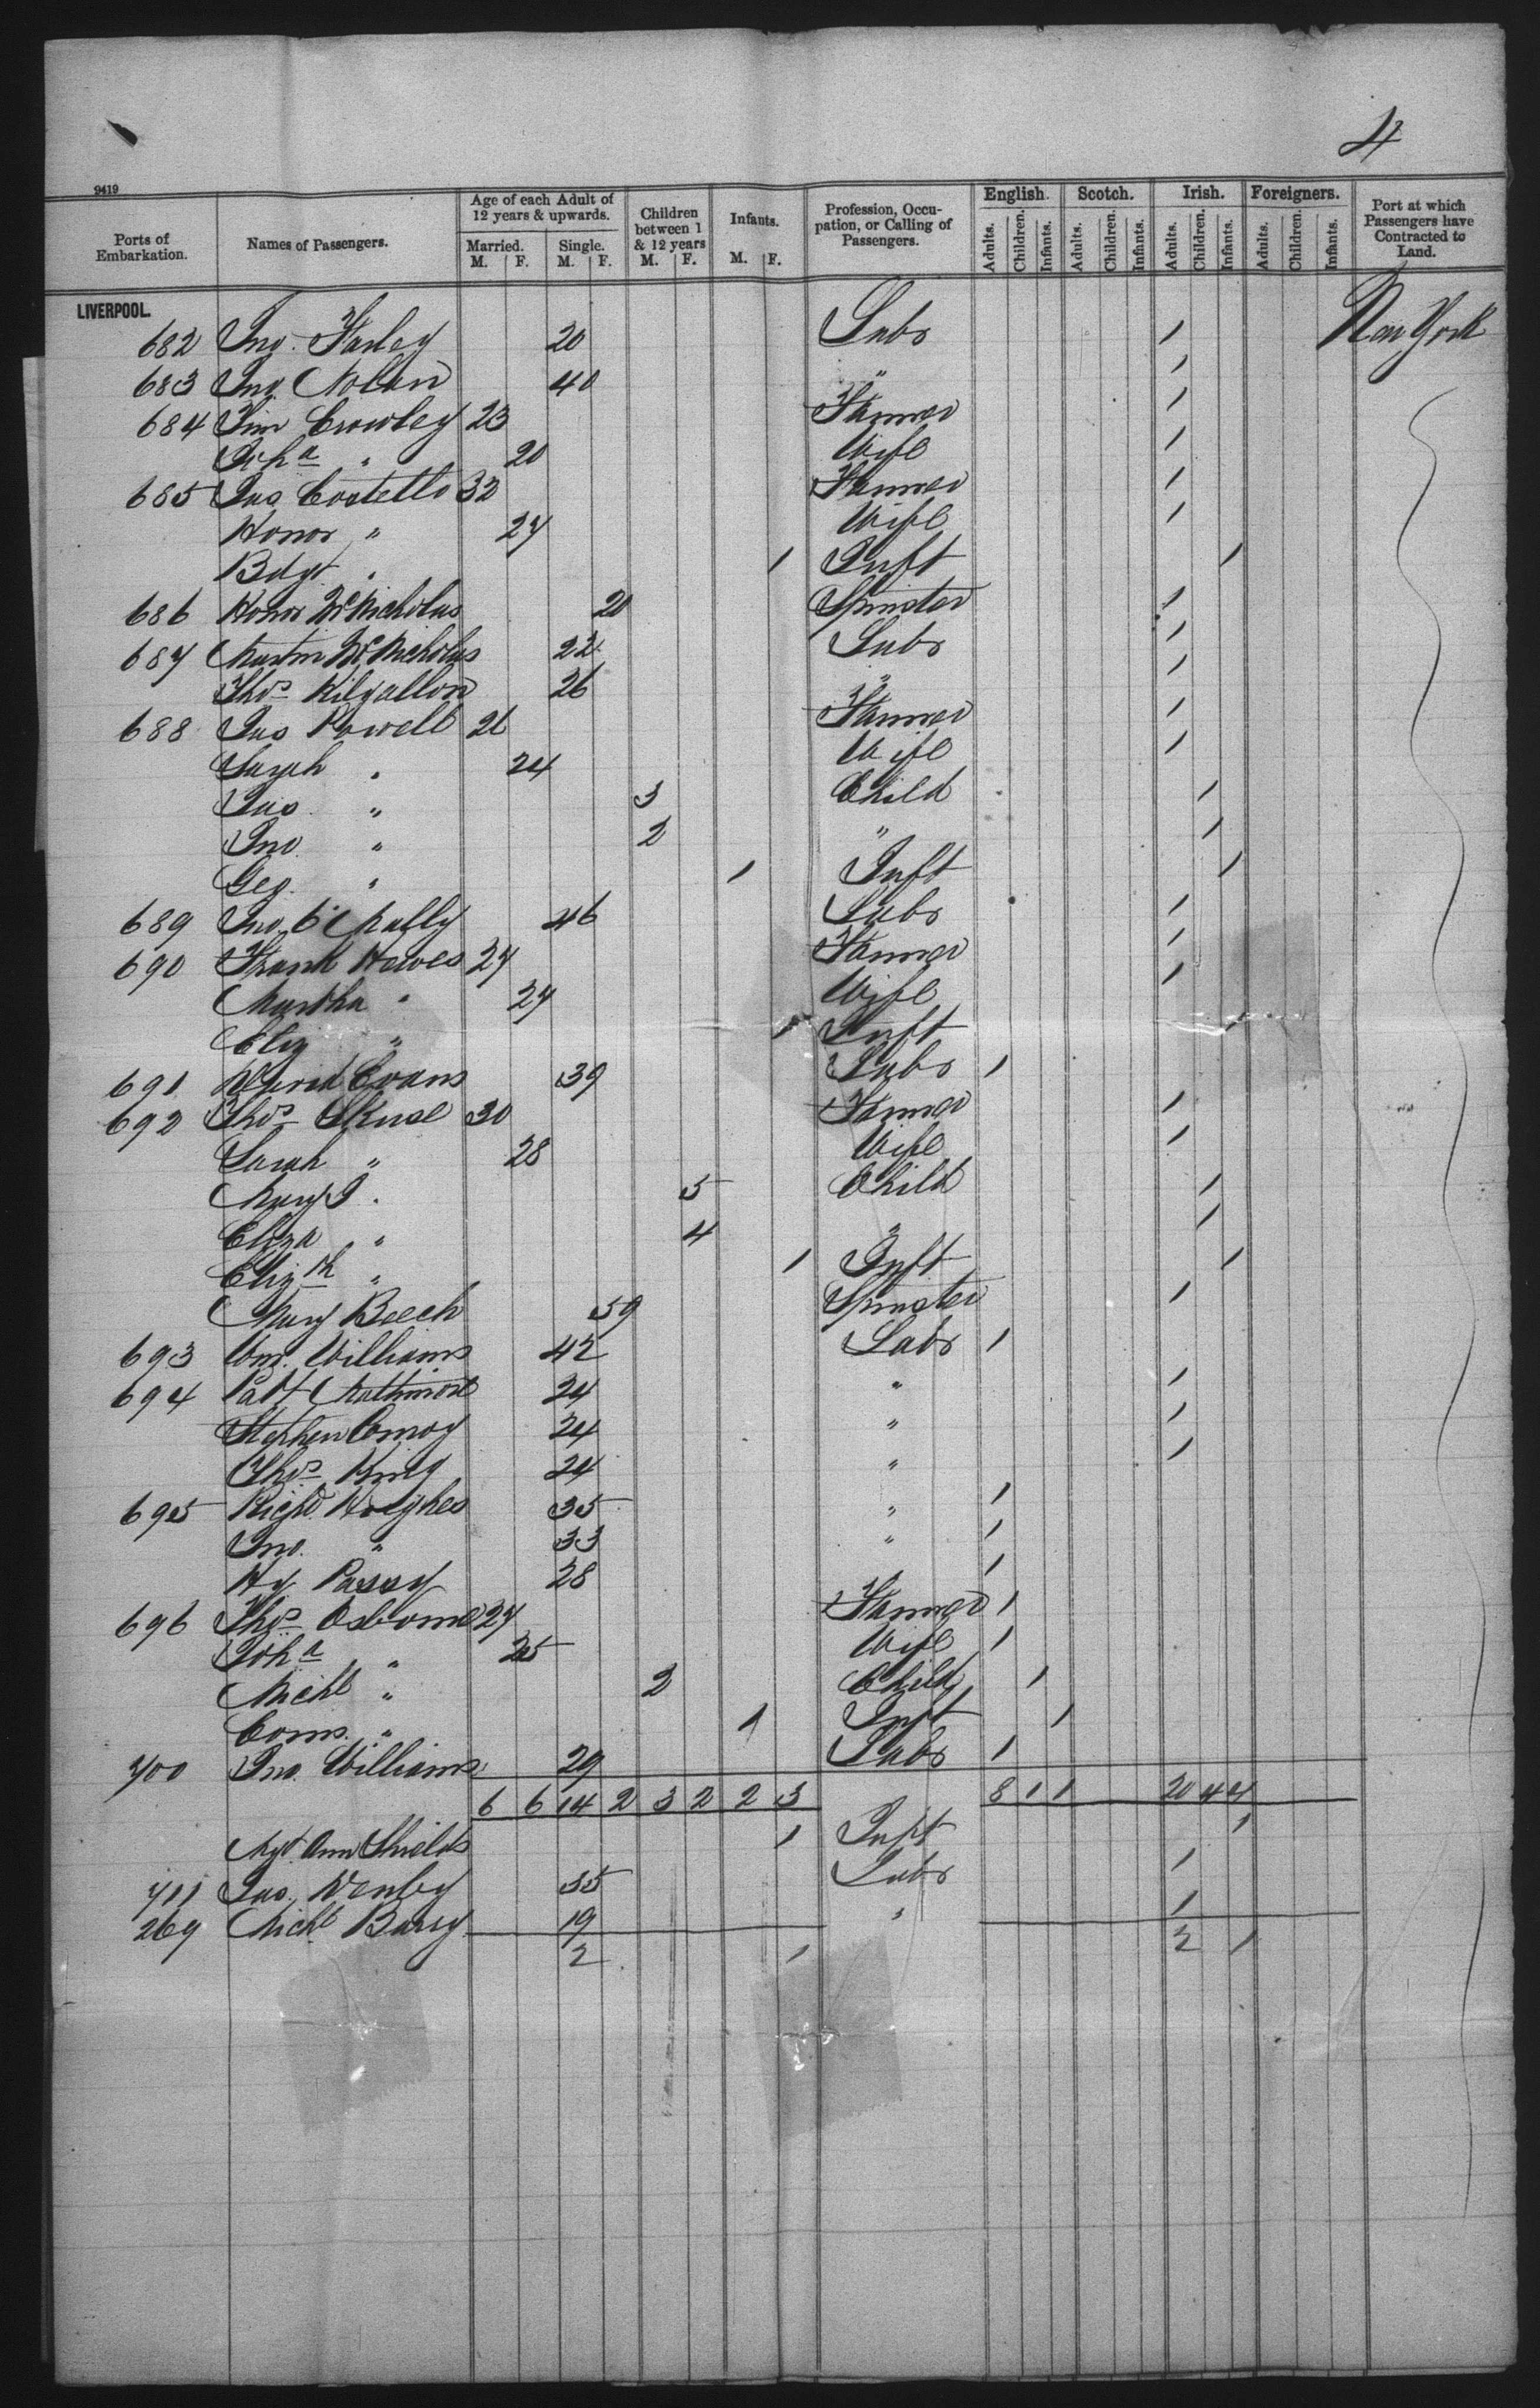 4
9419
Ports of Embarkation. Names of Passengers. Age of each Adult of 12 years & upwards. Married. M. F. Single. M. F. Children between 1 & 12 years M. F. Infants. M. F. Profession, Occupation, or Calling of Passengers. English. Adults. Children. Infants. Scotch. Adults. Children. Infants. Irish. Adults. Children. Infants. Foreigners. Adults. Children. Infants. Port at which Passengers have Contracted to Land.
LIVERPOOL.
682 Jno. Farley 20 Labr 1 New York
683 Jno. Nolan 40 " 1
684 Tim Crowley 23 Farmer 1
Joha " 20 Wife 1
685 Jas Costello 32 Farmer 1
Honor " 27 Wife 1
Bdgt " 1 Inft 1
686 Honor McNicholas 20 Spinster 1
687 Martin McNicholas 22 Labr 1
Thos Kilgallon 26 " 1
688 Jas Powell 26 Farmer 1
Sarah " 24 Wife 1
Jas " 3 Child 1
Jno " 2 " 1
Geo. " 1 Inft 1
689 Jno. O'Mally 46 Labr 1
690 Frank Hewes 27 Farmer 1
Martha " 27 Wife 1
Eliz " 1 Inft 1
691 Alfred Evans 39 Labr 1
692 Thos Skuse 30 Farmer 1
Sarah " 28 Wife 1
Mary J. 5 Child 1
Eliza " 4 " 1
Elizth " 1 Inft 1
Mary Beech 59 Spinster 1
693 Wm. Williams 42 Labr 1
694 Patt 24 " 1
Stephen Conroy 24 " 1
Thos King 24 " 1
695 Richd. Hughes 35 " 1
Jno. " 33 " 1
Hy 28 1
696 Thos Osborne 27 Farmer 1
Joha " 25 Wife 1
Michl " 2 Child 1
Corns. " 1 Inft 1
700 Jno. Williams 29 Labr 1
6 6 14 2 3 2 2 3 8 1 1 20 4 4
Mgt Ann Shields 1 Inft 1
711 Jas. 35 Labr 1
269 Michl Barry 19 " 1
2 1 2 1